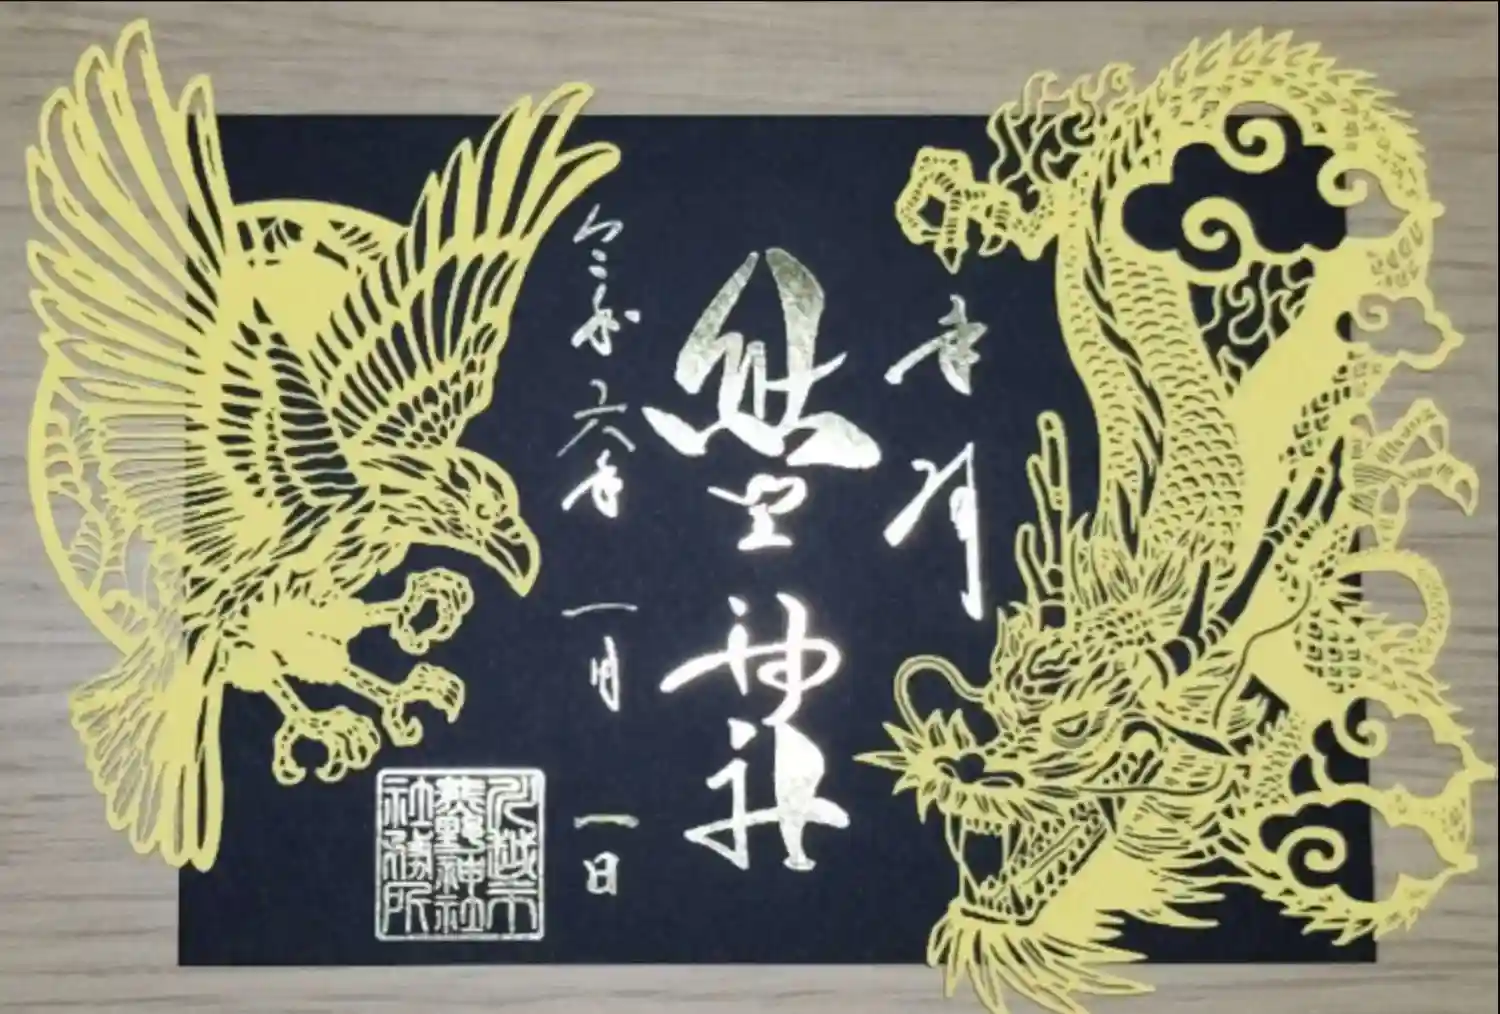 奉拝
熊野神社
令和六年
一月
一日
川越市
熊野神社
社務所